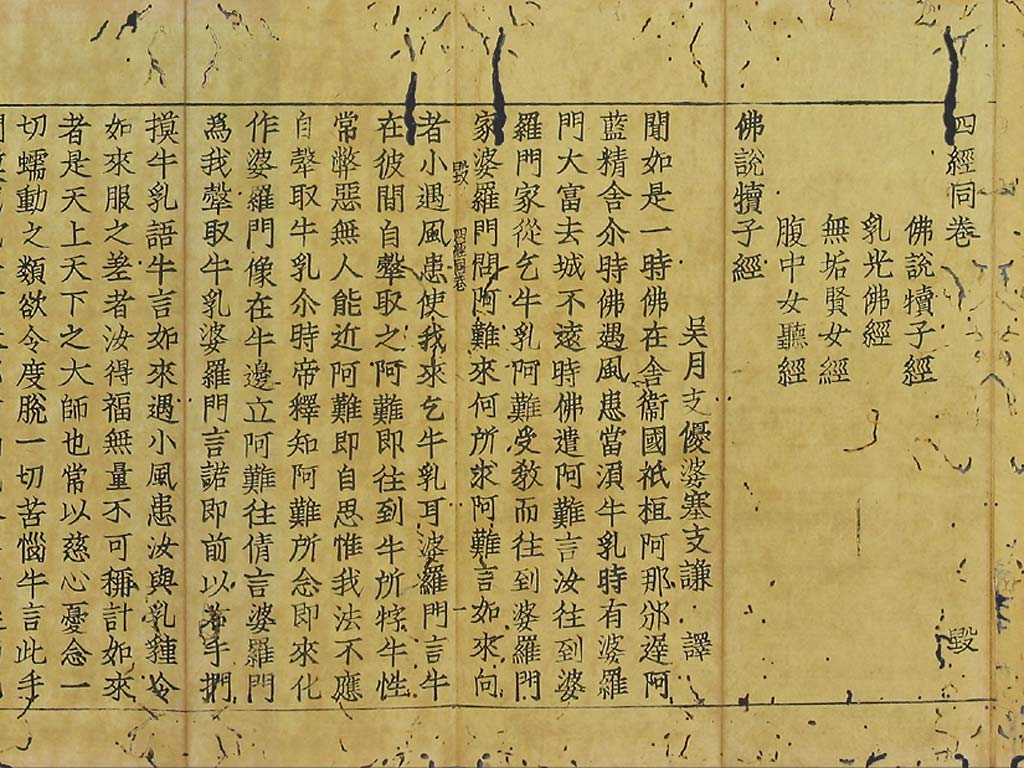 四經同卷 毀
佛說犢子經
乳光佛經
無垢賢女經
腹中女聽經
佛說犢子經
吳月支優婆塞支謙 譯
聞如是一時佛在舍衞國祇桓阿那邠遲阿
藍精舍尒時佛遇風患當須牛乳時有婆羅
門大富去城不遠時佛遣阿難言汝往到婆
羅門家從乞牛乳阿難受敎而往到婆羅門
家婆羅門問阿難來何所求阿難言如來向
毀 四經同卷 一
者小遇風患使我來乞牛乳耳婆羅門言牛
在彼間自𤛗取之阿難即往到牛所牸牛性
常弊惡無人能近阿難即自思惟我法不應
自𤛗取牛乳尒時帝釋知阿難所念即來化
作婆羅門像在牛邊立阿難往倩言婆羅門
爲我𤛗取牛乳婆羅門言諾即前以右手捫
摸牛乳語牛言如來遇小風患汝與乳湩令
如來服之差者汝得福無量不可稱計如來
者是天上天下之大師也常以慈心憂念一
切蠕動之類欲令度脫一切苦惱牛言此手